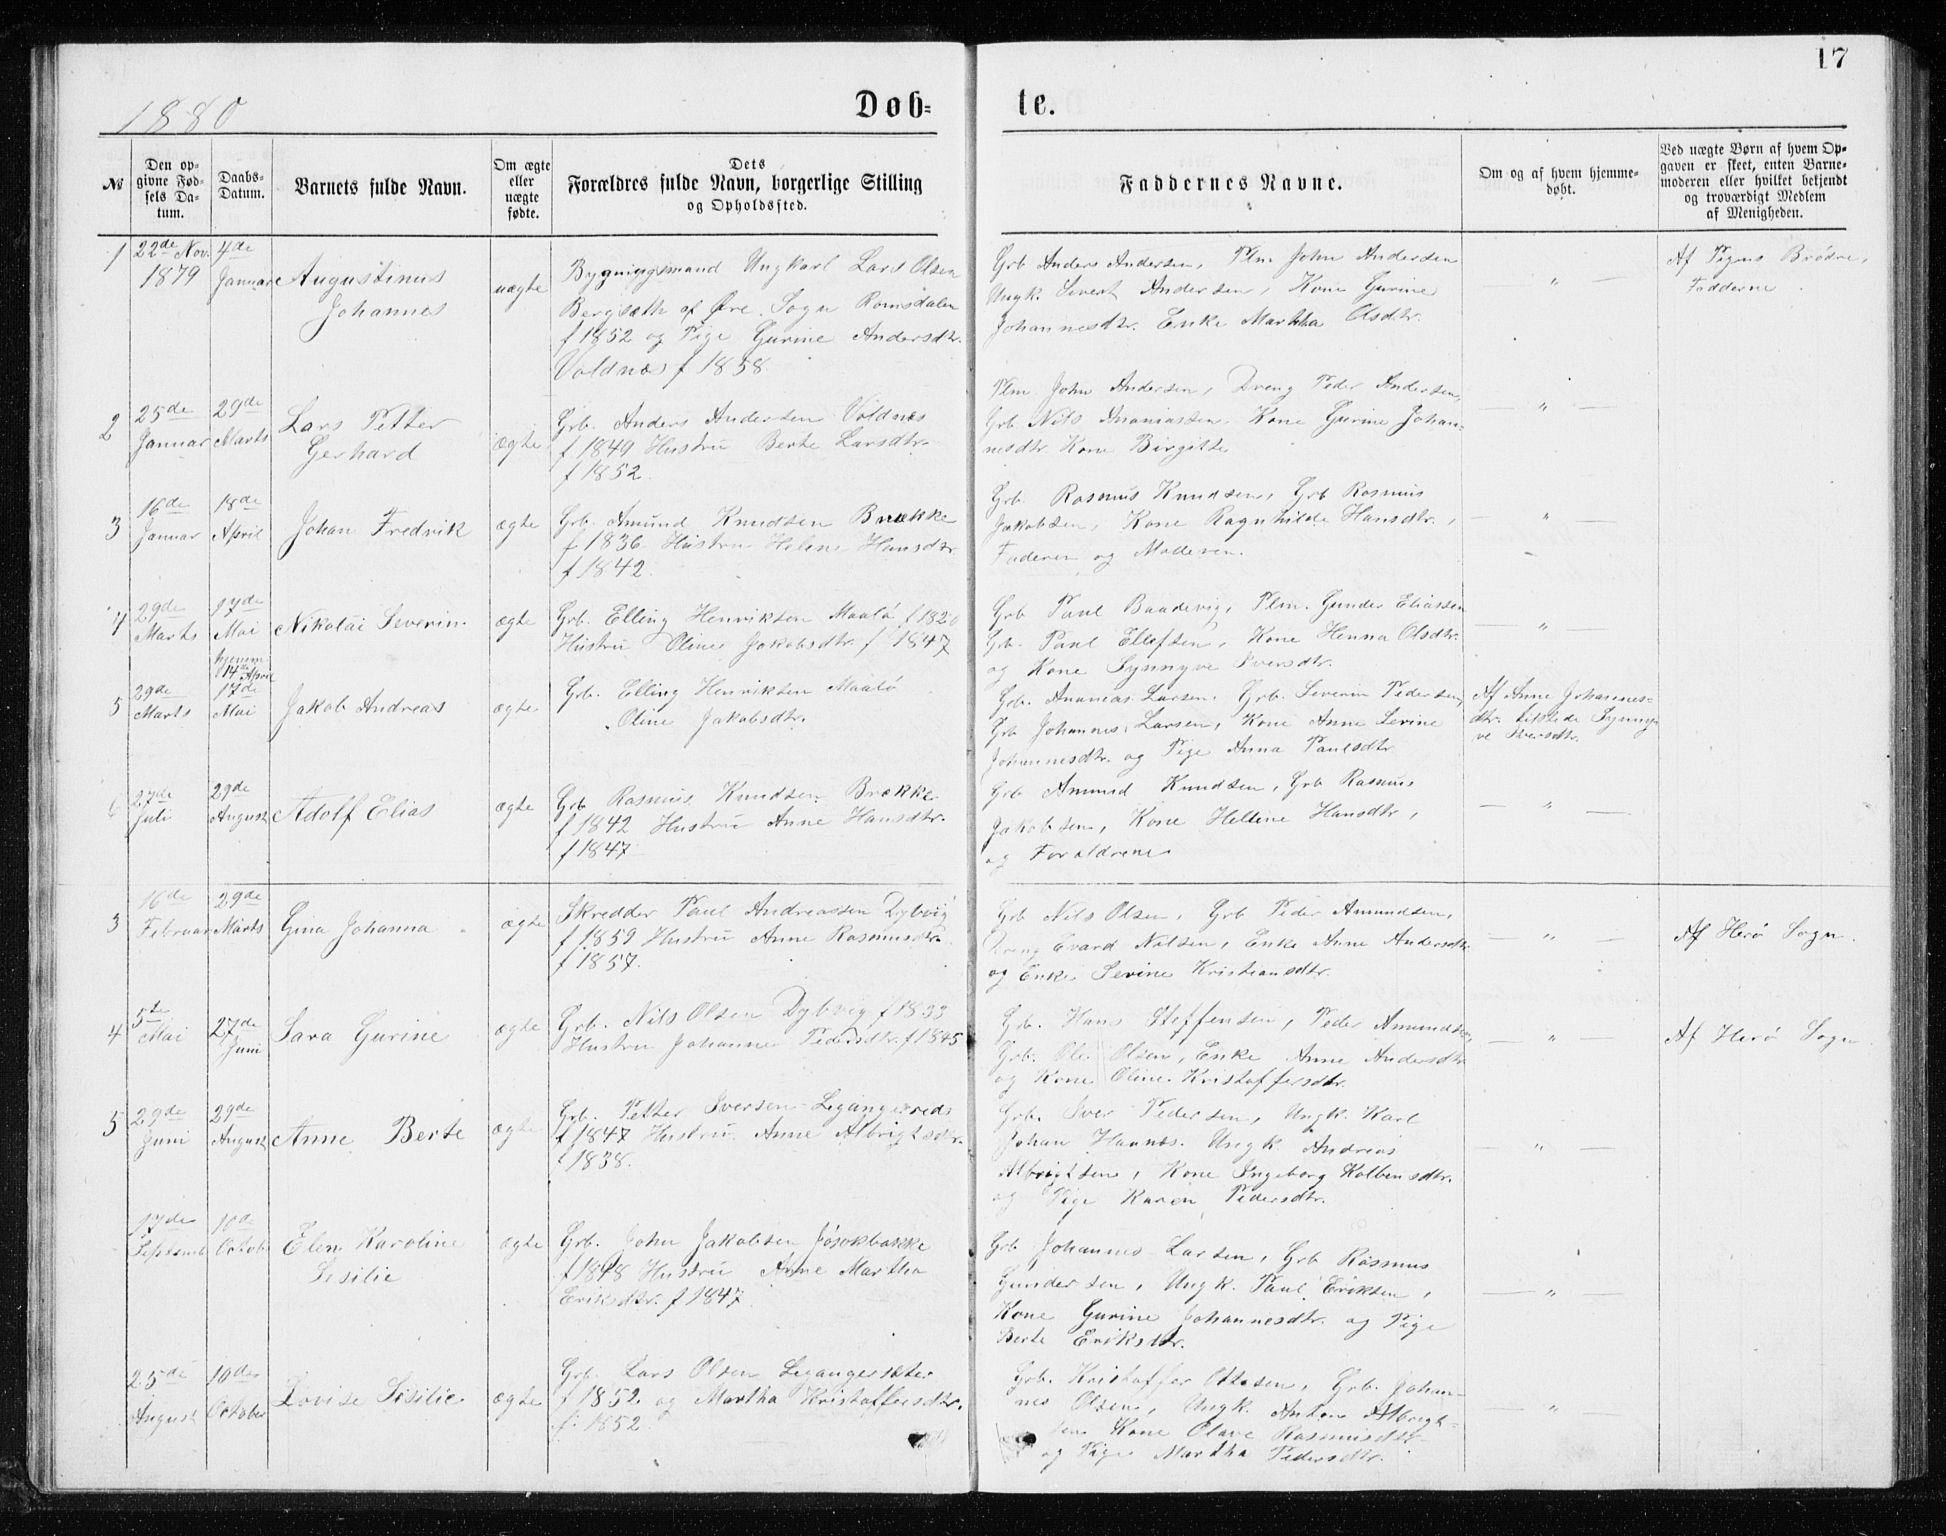 17
1880
Døb-
te.
№
Den op-
givne Fød-
sels Da-
tum.
Daabs-
Datum.
Barnets fulde Navn.
Om ægte
eller
uægte
fødte.
Dets
Forældres fulde Navn, borgerlige Stilling
og Opholdssted.
Faddernes Navne.
Om og af hvem hjemme-
døbt.
Ved uægte Børn af hvem Op-
gaven er skeet, enten Barne-
moderen eller hvilket bekjendt
og troværdigt Medlem
af Menigheden.
1
22de Nov.
1879
4de
Januar
Augustinus
Johannes
uægte
Bygningsmand Ungkarl Lars Olsen
Bergsæth af Øre Sogn Romsdalen
f 1852 og Pige Gurine Andersdtr.
Voldnæs f 1858.
Grb Anders Andersen, Plm. John Andersen
Ungk. Sivert Andersen, Kone Gurine
Johannesdtr. Enke Martha Olsdtr.
— " —
Af Pigens Brødre,
Fadderne.
2
25de
Januar
29de
Marts
Lars Petter
Gerhard
ægte
Grb. Anders Andersen Voldnæs
f 1849 Hustru Berte Larsdtr.
f 1852.
Plm John Andersen, Dreng Peder Andersen,
Grb Nils Ananiassen, Kone Gurine Johan-
nesdtr Kone Birgitte
— " —
3
16de
Januar
18de
April
Johan Fredrik
ægte
Grb. Amund Knudsen Brække
f 1836 Hustru Helene Hansdtr.
f 1842.
Grb. Rasmus Knudsen, Grb Rasmus
Jakobsen, Kone Ragnhilde Hansdtr.,
Faderen og Moderen.
— " —
4
29de
Marts
17de
Mai
Nikolai Severin
ægte
Grb. Elling Henriksen Maalø f 1820
Hustru Oline Jakobsdtr. f 1847
Grb Paul Baadevig, Plm. Gunder Eliassen
Grb. Paul Ellefsen, Kone Henna Olsdtr.
og Kone Synnyve Iversdtr.
— " —
5
29de
Marts
hjemm.
14de April
17de
Mai
Jakob Andreas
ægte
Grb. Elling Henriksen Maalø
Oline Jakobsdtr.
Grb. Ananias Larsen, Grb. Severin Pedersen,
Grb Johannes Larsen, Kone Anne Sevine
Johannesdtr. og Pige Anna Paulsdtr
Af Anne Johannes-
dtr. tilstede Synny-
ve Iversdtr.
6
27de
Juli
29de
August
Adolf Elias
ægte
Grb Rasmus Knudsen Brække
f 1842 Hustru Anne Hansdtr.
f 1847
Grb Amund Knudsen, Grb Rasmus
Jakobsen, Kone Hellene Hansdtr,
og Forældrene
— " —
3
16de
Februar
29de
Marts
Gina Johanna
ægte
Skredder Paul Andreassen Dybvig
f 1859 Hustru Anne Rasmusdtr.
f 1857.
Grb Nils Olsen, Grb Peder Amundsen,
Dreng Evard Nilsen, Enke Anne Andersdtr
og Enke Sevine Kristiansdtr.
— " —
Af Herø Sogn.
4
5te
Mai
27de
Juni
Sara Gurine
ægte
Grb. Nils Olsen Dybvig f 1833
Hustru Johanne Pedersdtr. f 1845
Grb. Hans Steffensen, Peder Amundsen,
Grb. Ole Olsen, Enke Anne Andersdtr
og Kone Oline Kristoffersdtr.
— " —
Af Herø Sogn
5
29de
Juni
29de
August
Anne Berte
ægte
Grb. Petter Iversen Leganger
f 1847 Hustru Anne Albrigtsdtr.
f 1838.
Grb. Iver Pedersen, Ungk. Karl
Johan Hannes. Ungk Andreas
Albrigtsen, Kone Ingeborg Kolbensdtr.
og Pige Karen Pedersdtr.
— " —
17de
Septemb
10de
Octob
Elen Karoline
Sesilie
ægte
Grb. John Jakobsen Jøsokbakke
f 1848 Hustru Anne Martha
Eriksdtr. f 1847.
Grb Johannes Larsen, Grb Rasmus
Gundersen, Ungk. Paul Eriksen,
Kone Gurine Johannesdtr. og Pige
Berte Eriksdtr.
— " —
25de
August
10de
October
Lovise Sisilie
ægte
Grb. Lars Olsen Legangersæter
f 1852 og Martha Kristoffersdtr.
f 1852
Grb. Kristoffer Ottesen, Grb. Johan-
nes Olsen, Ungk. Anton Albregt-
sen Kone Olave Rasmusdtr
og Pige Martha Pedersdtr.
— " —